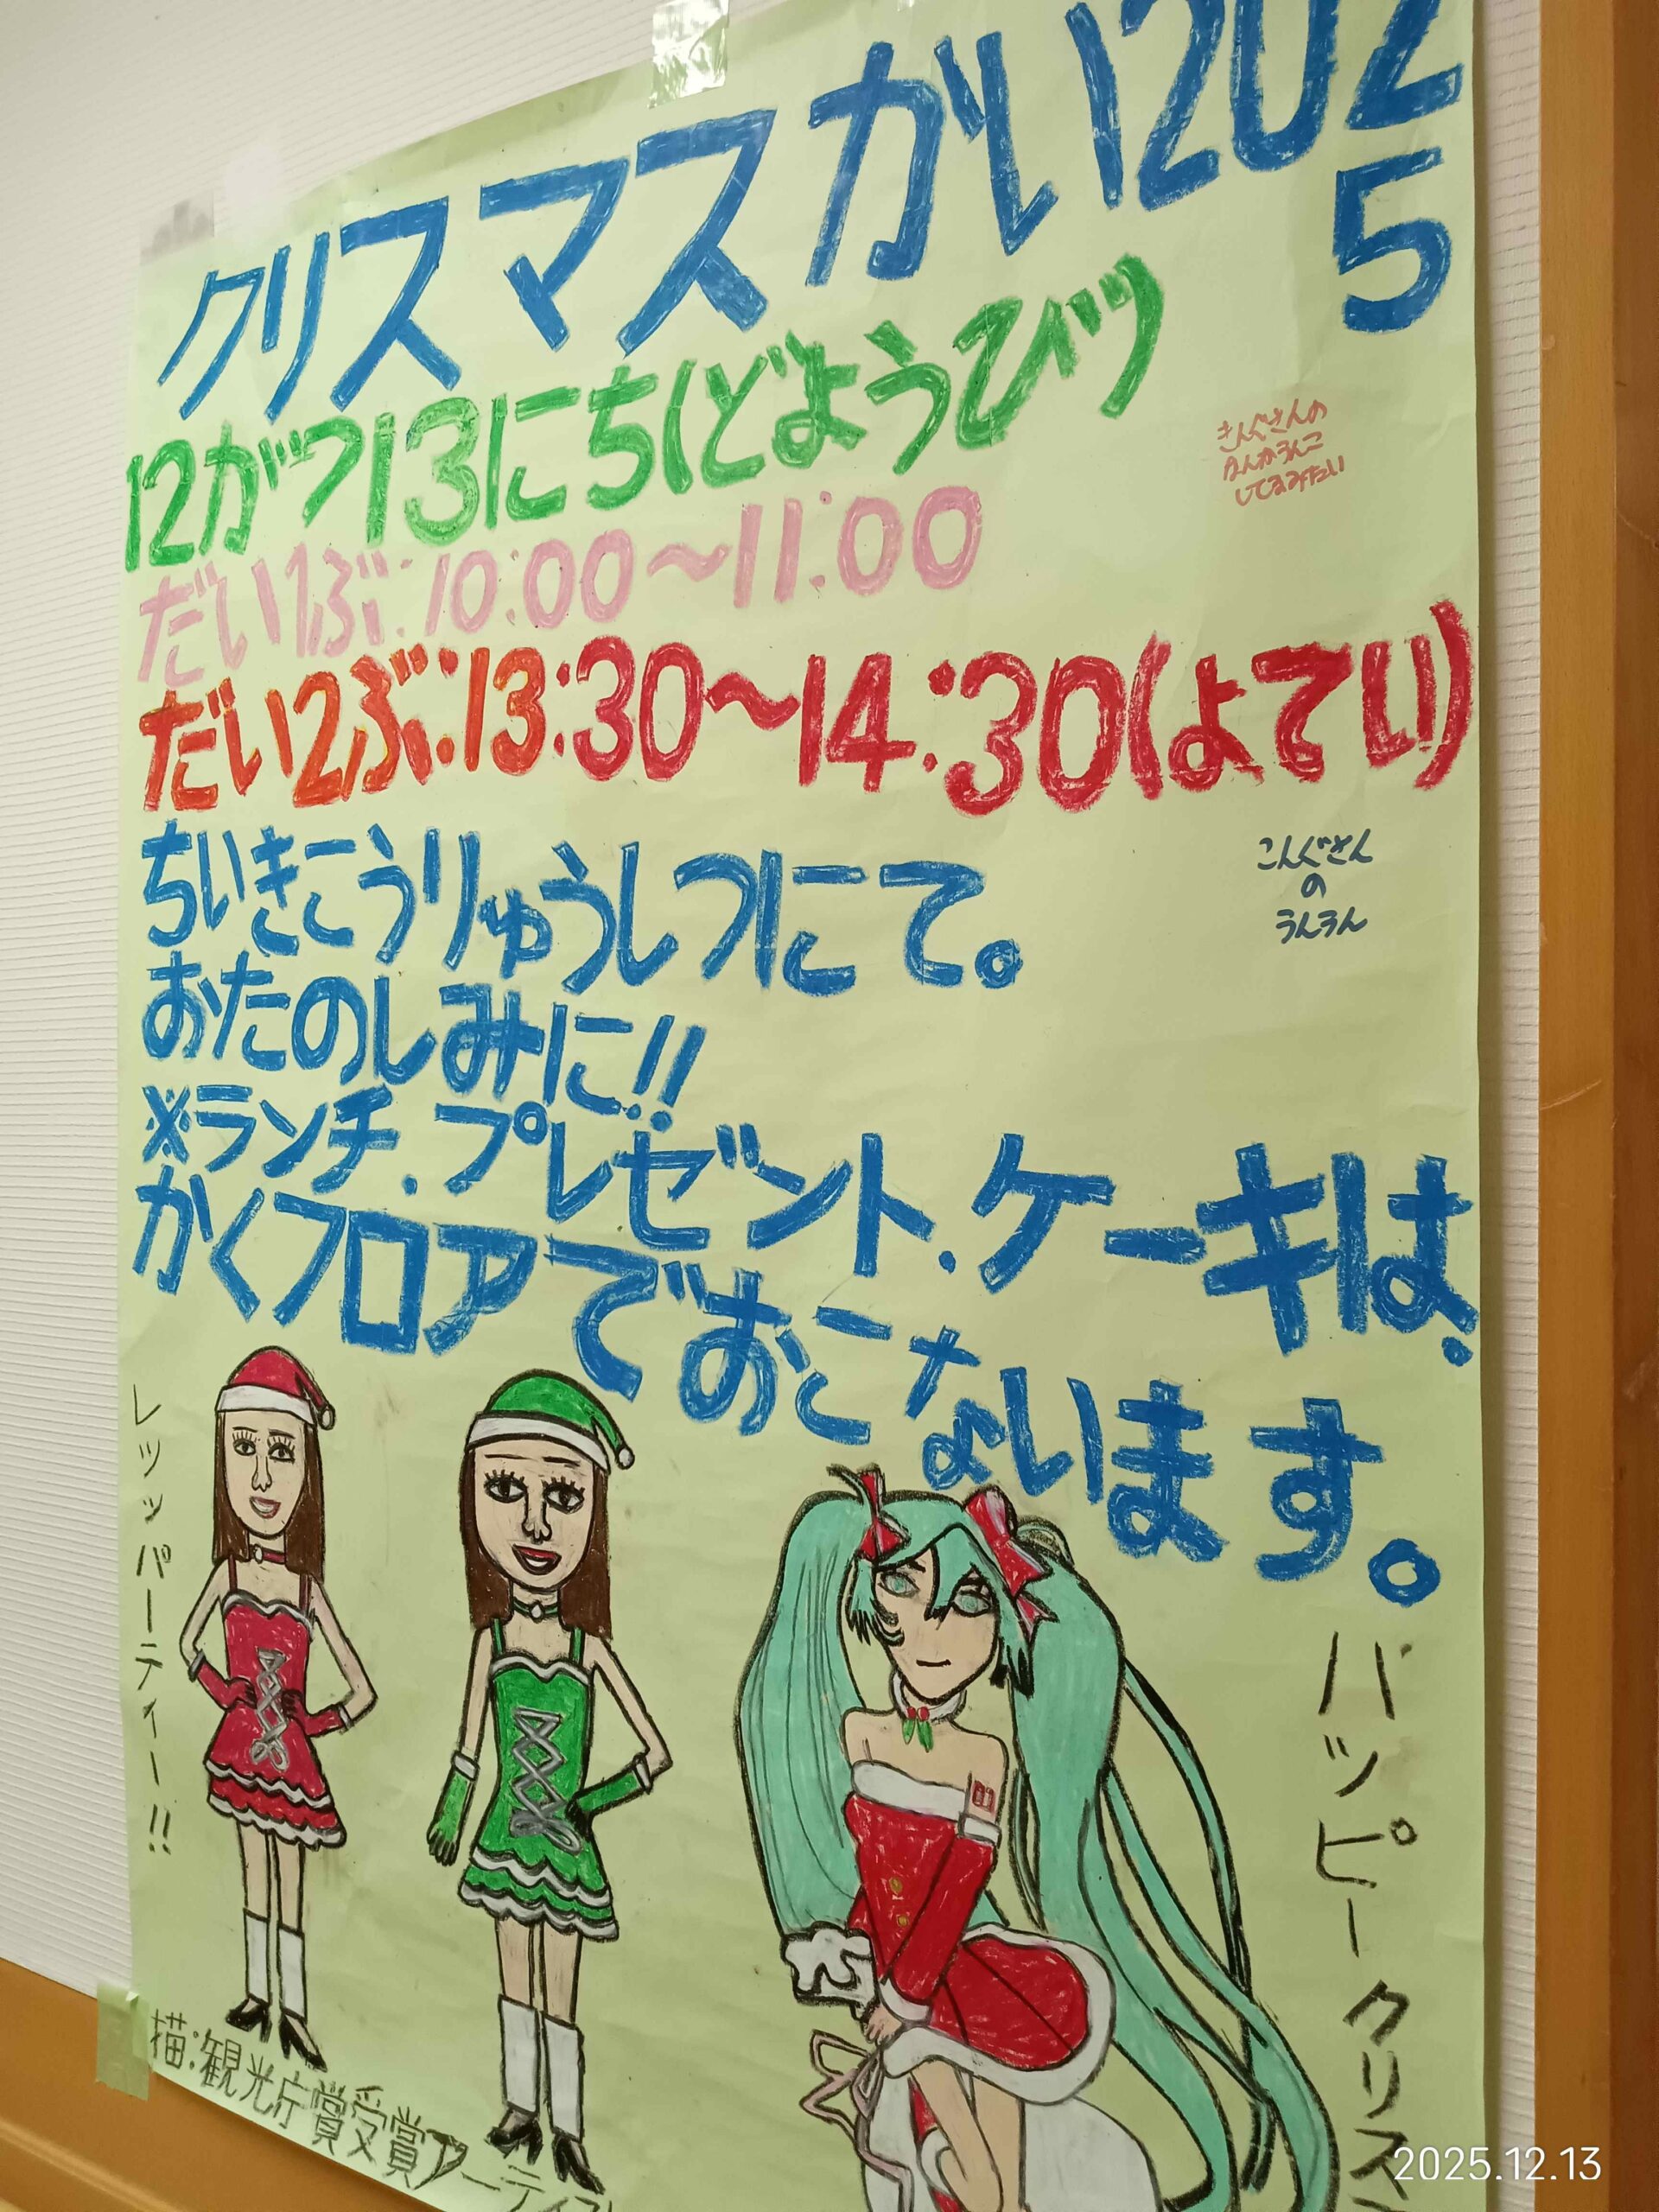 クリスマスかい2025
12がつ13にち(どようびツ
だい1ぶ:10:00～11:00
だい2ぶ:13:30～14:30(よてい)
ちいきこうりゅうしつにて。
おたのしみに!!
※ランチ.プレゼント.ケーキは、
かくフロアでおこないます。
こんぐさん
の
レッツパーティー!!
ハッピークリス
描:観光庁賞受賞アーティスト
2025.12.13